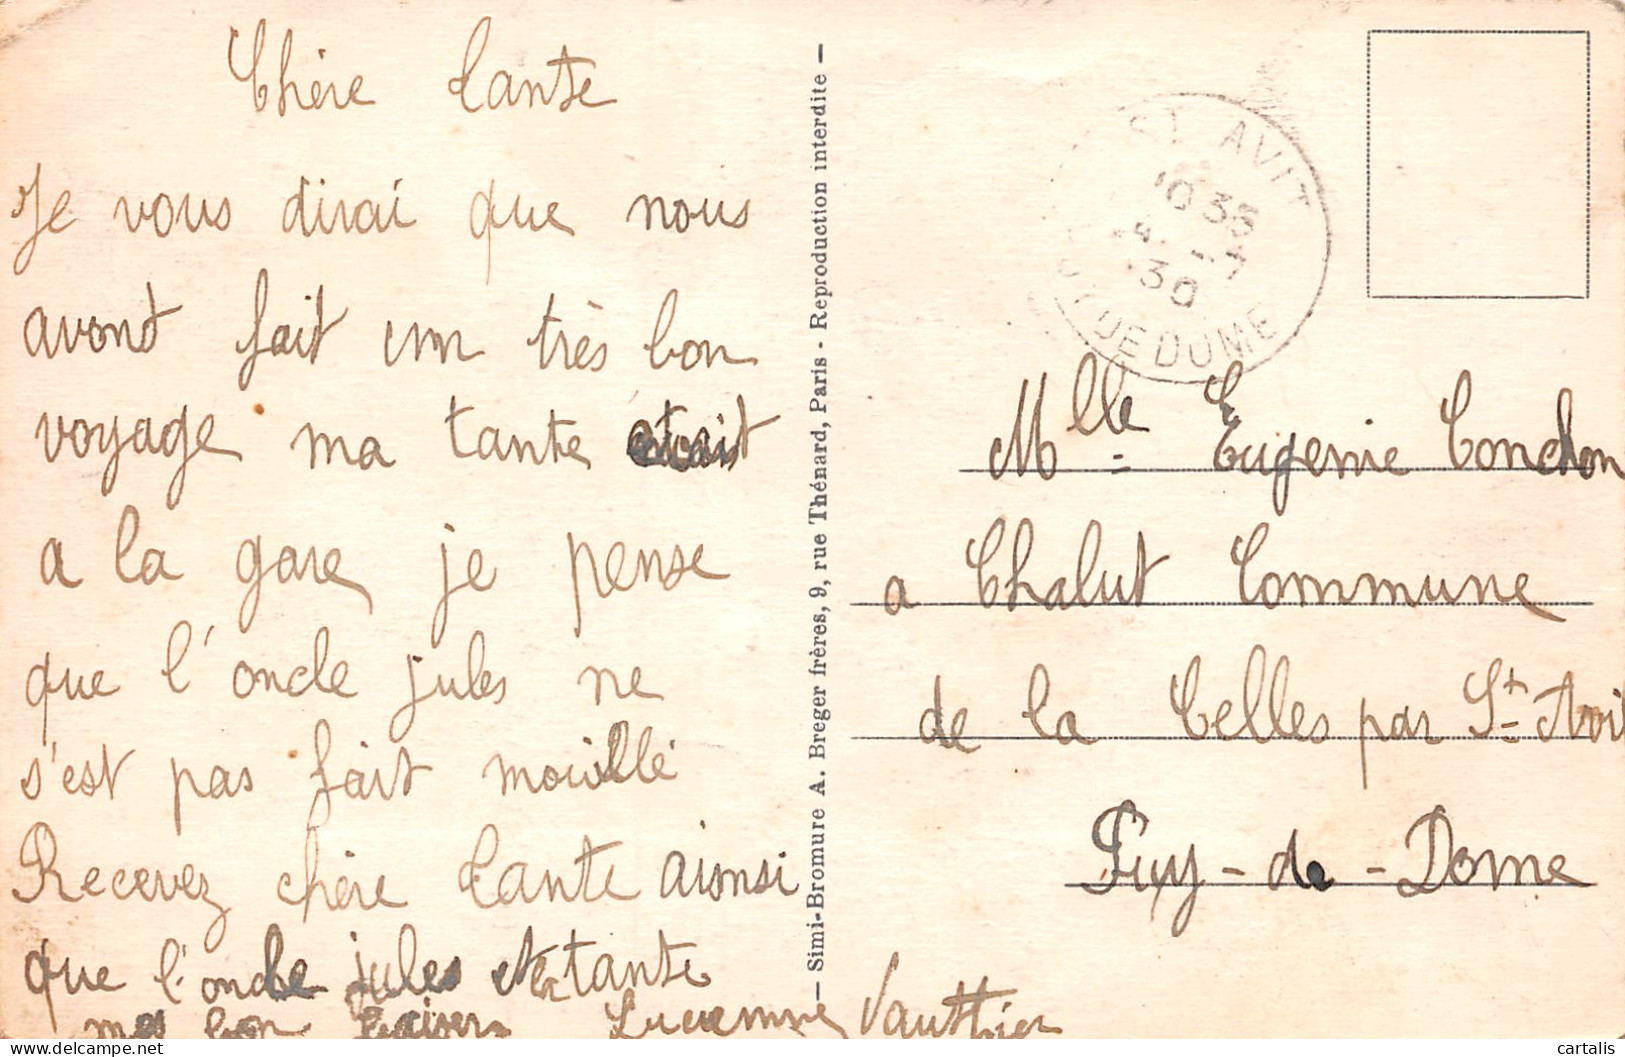 Chère tante
Je vous dirai que nous
avont fait un très bon
voyage ma tante etait
a la gare je pense
que l'oncle jules ne
s'est pas fait mouillé
Recevez chère tante ainsi
que l'oncle jules et la tante
mes bon baisers Lucienne Vauthier
— Simi-Bromure A. Breger frères, 9, rue Thénard, Paris - Reproduction interdite —
ST AVIT
10 35
4 - 7
30
PUY DE DOME
Mlle Eugenie Conchon
a Chalut Commune
de la Celles par St Avit
Puy-de-Dome
cartalis